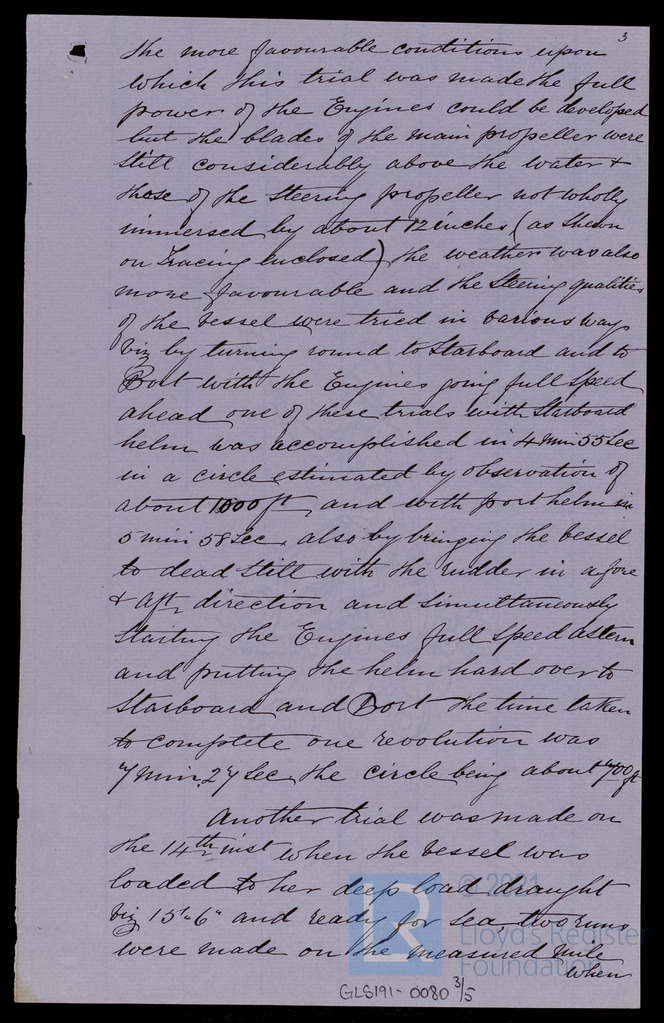 3
the more favourable conditions upon
which this trial was made the full
power of the Engines could be developed
but the blades of the main propeller were
still considerably above the water &
those of the steering propeller not wholly
immersed by about 12 inches (as shewn
on tracing enclosed) the weather was also
more favourable and the steering qualities
of the vessel were tried in various ways
viz by turning round to Starboard and to
Port with the Engines going full speed
ahead one of these trials with Starboard
helm was accomplished in 4 min 55 sec
in a circle estimated by observation of
about 1000 ft, and with port helm in
5 min 58 sec, also by bringing the vessel
to dead still with the rudder in a fore
& aft, direction and simultaneously
starting the Engines full speed astern
and putting the helm hard over to
Starboard and Port the time taken
to complete one revolution was
7 min, 27 sec, the circle being about 700 ft
Another trial was made on
the 14th inst when the vessel was
loaded to her deep load draught
viz 15'-6" and ready for sea, two runs
were made on the measured mile
when
© 2021
Lloyd's Register
Foundation
GLS191-0080 3/5